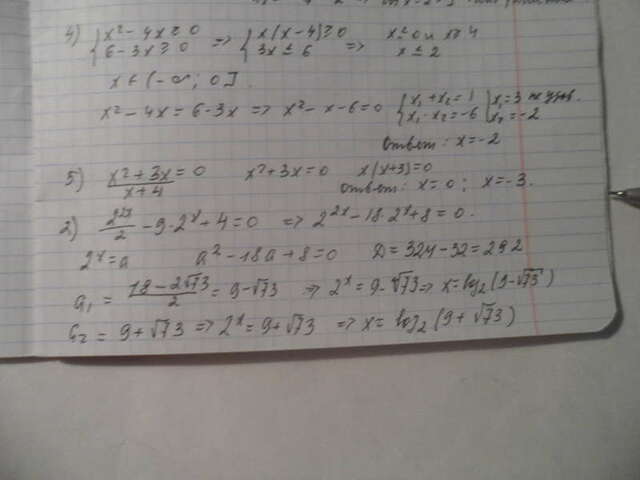 4) { x² - 4x ≥ 0 ; 6 - 3x ≥ 0 => { x(x-4) ≥ 0 ; 3x ≤ 6 => x ≤ 0 и x ≥ 4 ; x ≤ 2
x ∈ (-∞; 0].
x² - 4x = 6 - 3x => x² - x - 6 = 0 { x₁ + x₂ = 1 ; x₁ · x₂ = -6 | x₁ = 3 ; x₂ = -2
ответ: x = -2
5) (x² + 3x)/(x+4) = 0 x² + 3x = 0 x(x+3) = 0
ответ: x = 0; x = -3.
2) 2^(2x)/2 - 9·2^x + 4 = 0 => 2^(2x) - 18·2^x + 8 = 0.
2^x = a a² - 18a + 8 = 0 D = 324 - 32 = 292
a₁ = (18 - 2√73)/2 = 9 - √73 => 2^x = 9 - √73 => x = log₂(9 - √73)
a₂ = 9 + √73 => 2^x = 9 + √73 => x = log₂(9 + √73)